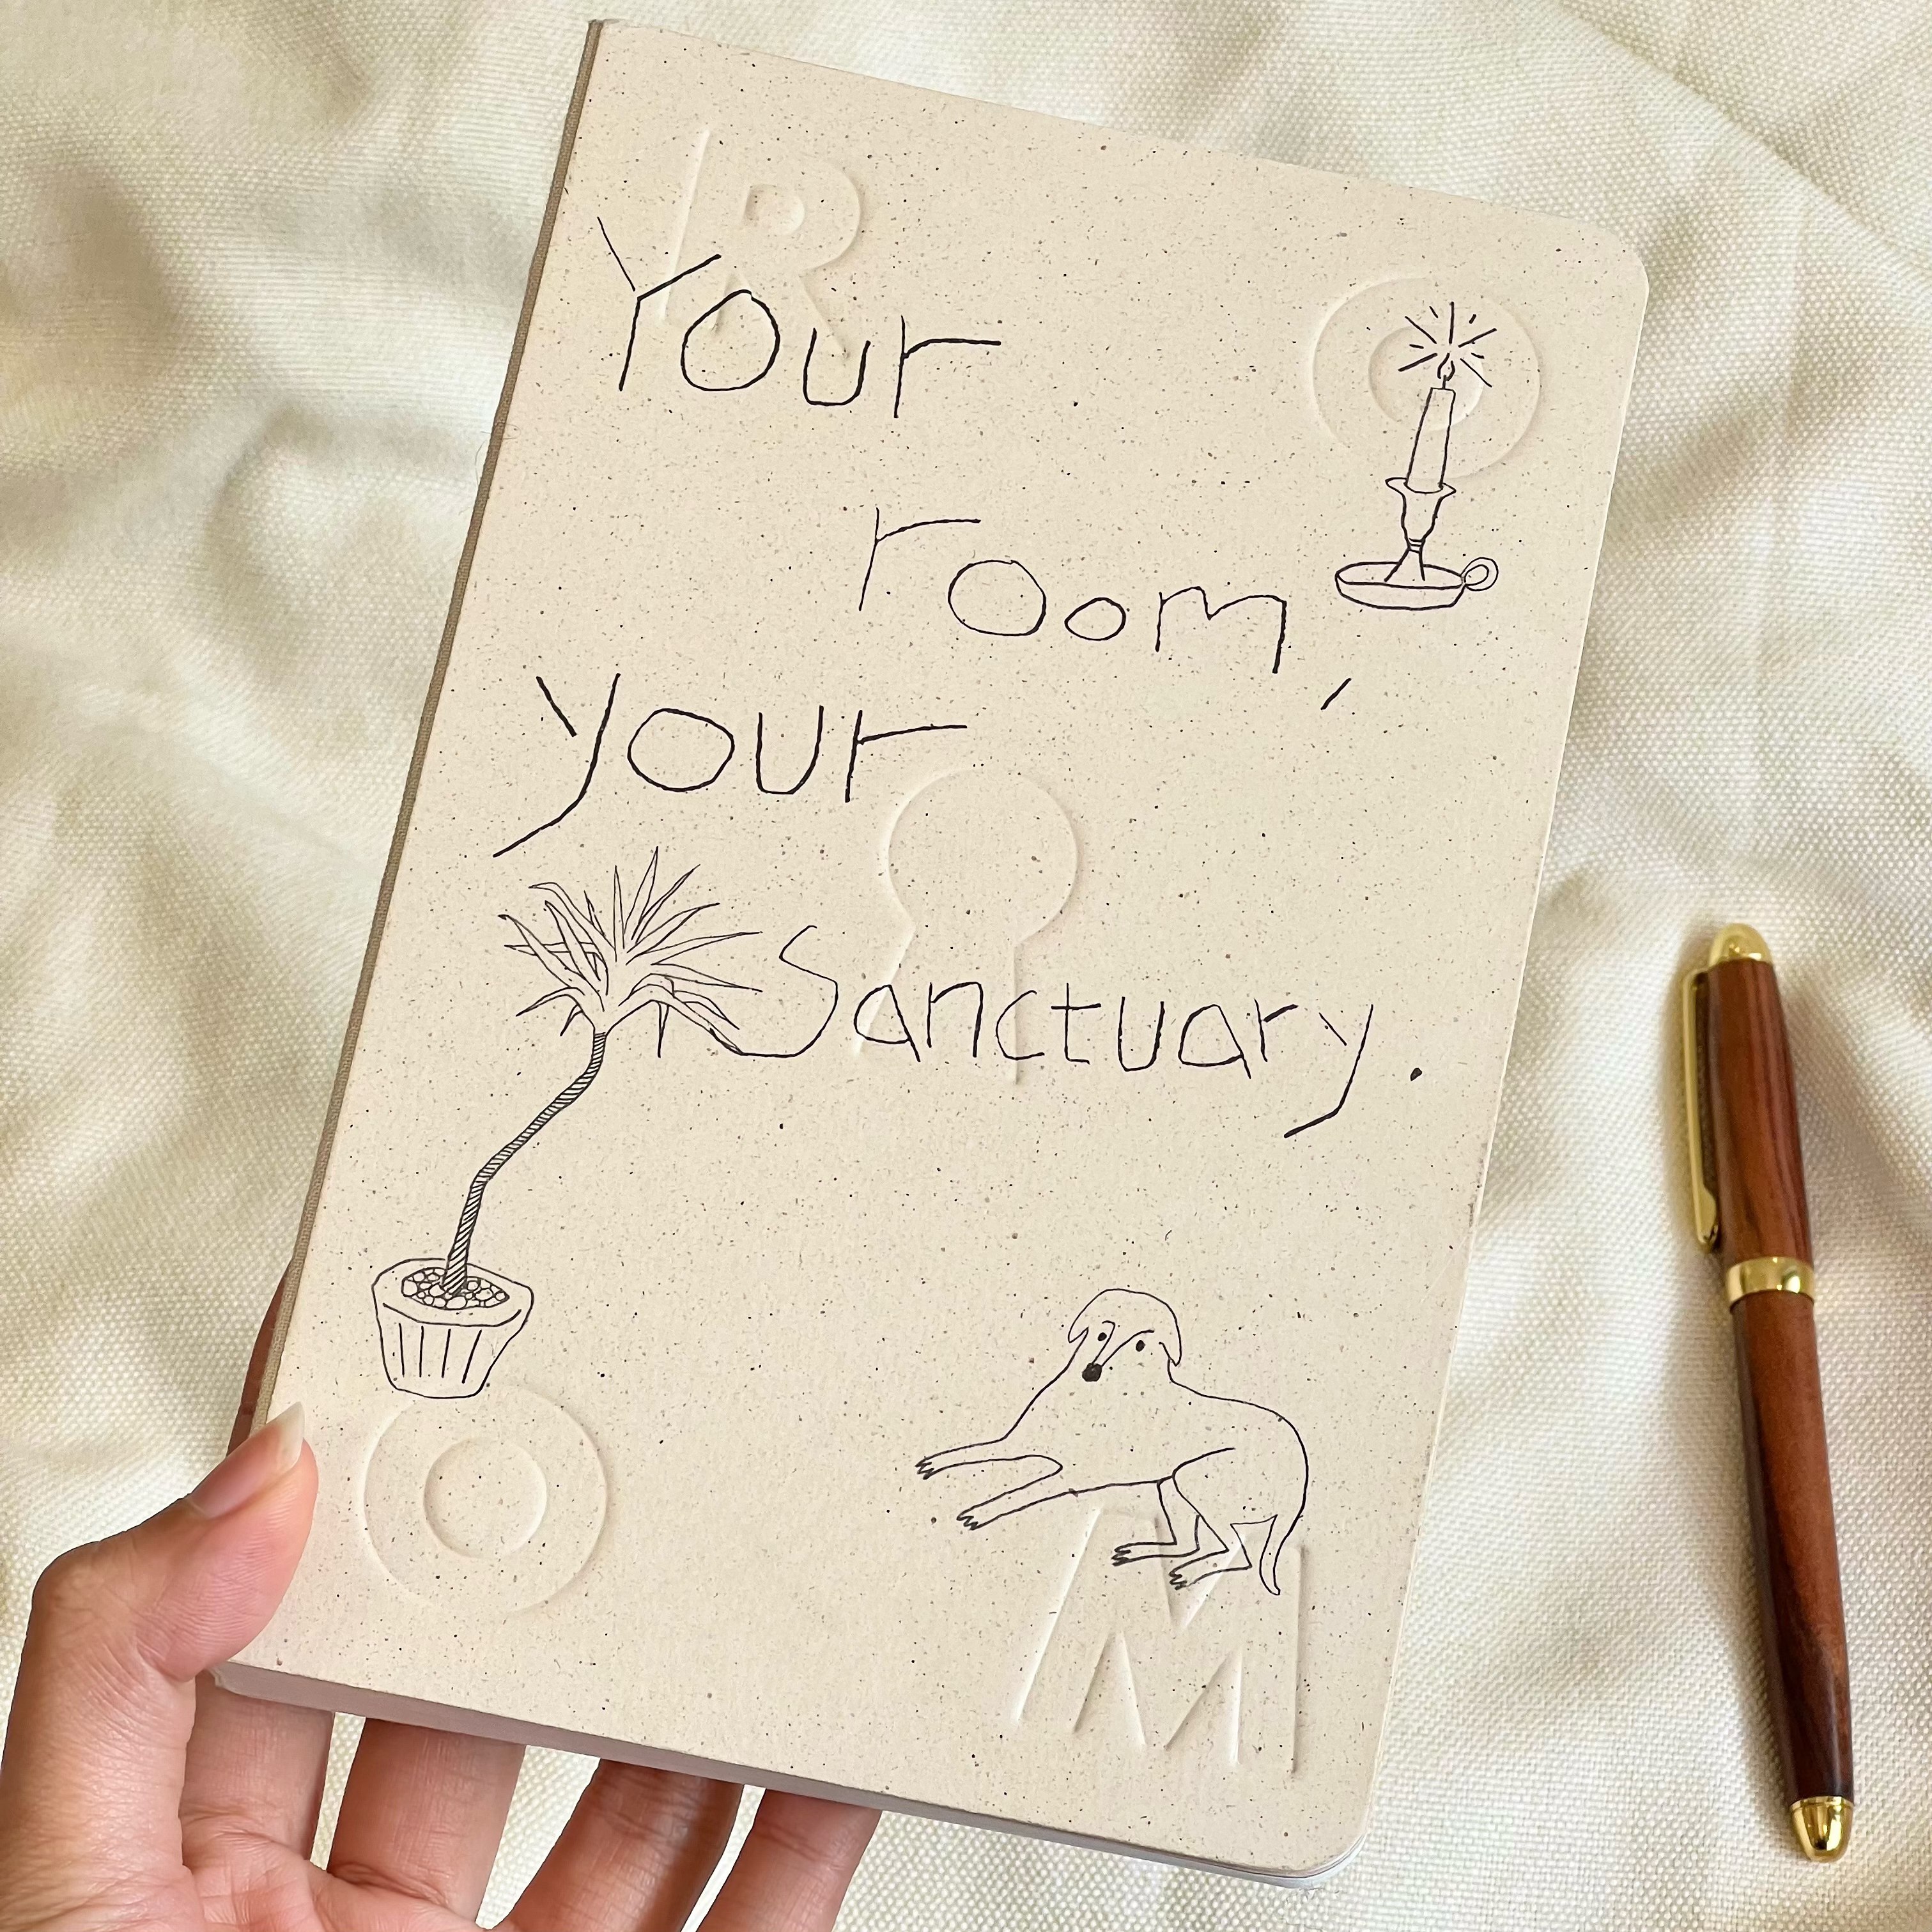 R
O
Your
room,
your
Sanctuary.
O
M